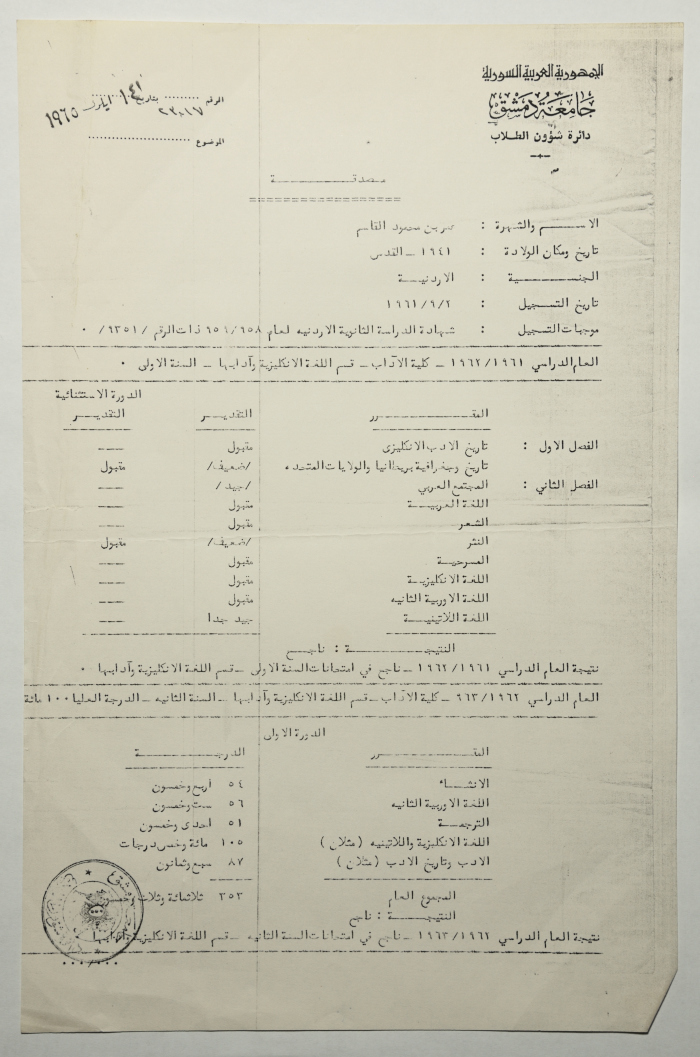 الجمهورية العربية السورية
جامعة دمشق
دائرة شؤون الطلاب
الرقم ٢٣٠١٧ بتاريخ ١٤ ايار ١٩٦٥
الموضوع
مصدقـــــة
الاســــم والشهرة : عمر بن محمود القاسم
تاريخ ومكان الولادة : ١٩٤١ ــ القدس
الجنـــــــسية : الاردنيـــة
تاريخ التسجيل : ١٩٦١/٩/٢
موجبات التسجيل : شهادة الدراسة الثانوية الاردنيه لعام ٩٥٩/٩٥٨ ذات الرقم /٦٣٥١/ ٠
العام الدراسي ١٩٦٢/١٩٦١ ــ كلية الآداب ــ قسم اللغة الانكليزية وآدابها ــ السنة الاولى ٠
الدورة الاستثنائية
المقـــــــرر التقديـــر التقديـــر
الفصل الاول : تاريخ الادب الانكليزى مقبول ــــ
تاريخ وجغرافية بريطانيا والولايات المتحده /ضعيف/ مقبول
الفصل الثاني : المجتمع العربي /جيد/ ــــ
اللغة العربيـــة مقبول ــــ
الشعر مقبول ــــ
النثر /ضعيف/ مقبول
المسرحيـــة مقبول ــــ
اللغة الانكليزيـة مقبول ــــ
اللغة الاوربية الثانيه مقبول ــــ
اللغة اللاتينيـــة جيد جدا ــــ
النتيجـــــة : ناجح
نتيجة العام الدراسي ١٩٦٢/١٩٦١ ــ ناجح في امتحانات السنة الاولى ــ قسم اللغة الانكليزية وآدابها ٠
العام الدراسي ٩٦٣/١٩٦٢ ــ كلية الآداب ــ قسم اللغة الانكليزية وآدابها ــ السنة الثانيه ــ الدرجة العليا ١٠٠ مائة
الدورة الاولى
المقـــــــرر الدرجـــــــة
الانشـاء ٥٤ أربع وخمسون
اللغة الاوربية الثانيه ٥٦ ست وخمسون
الترجمـــة ٥١ احدى وخمسون
اللغة الانكليزية واللاتينيه (مثلان) ١٠٥ مائة وخمس درجات
الادب وتاريخ الادب (مثلان) ٨٧ سبع وثمانون
المجموع العام ٣٥٣ ثلاثمائة وثلاث وخمسون
النتيجـــــة : ناجح
نتيجة العام الدراسي ١٩٦٣/١٩٦٢ ــ ناجح في امتحانات السنة الثانيه ــ قسم اللغة الانكليزية وآدابها